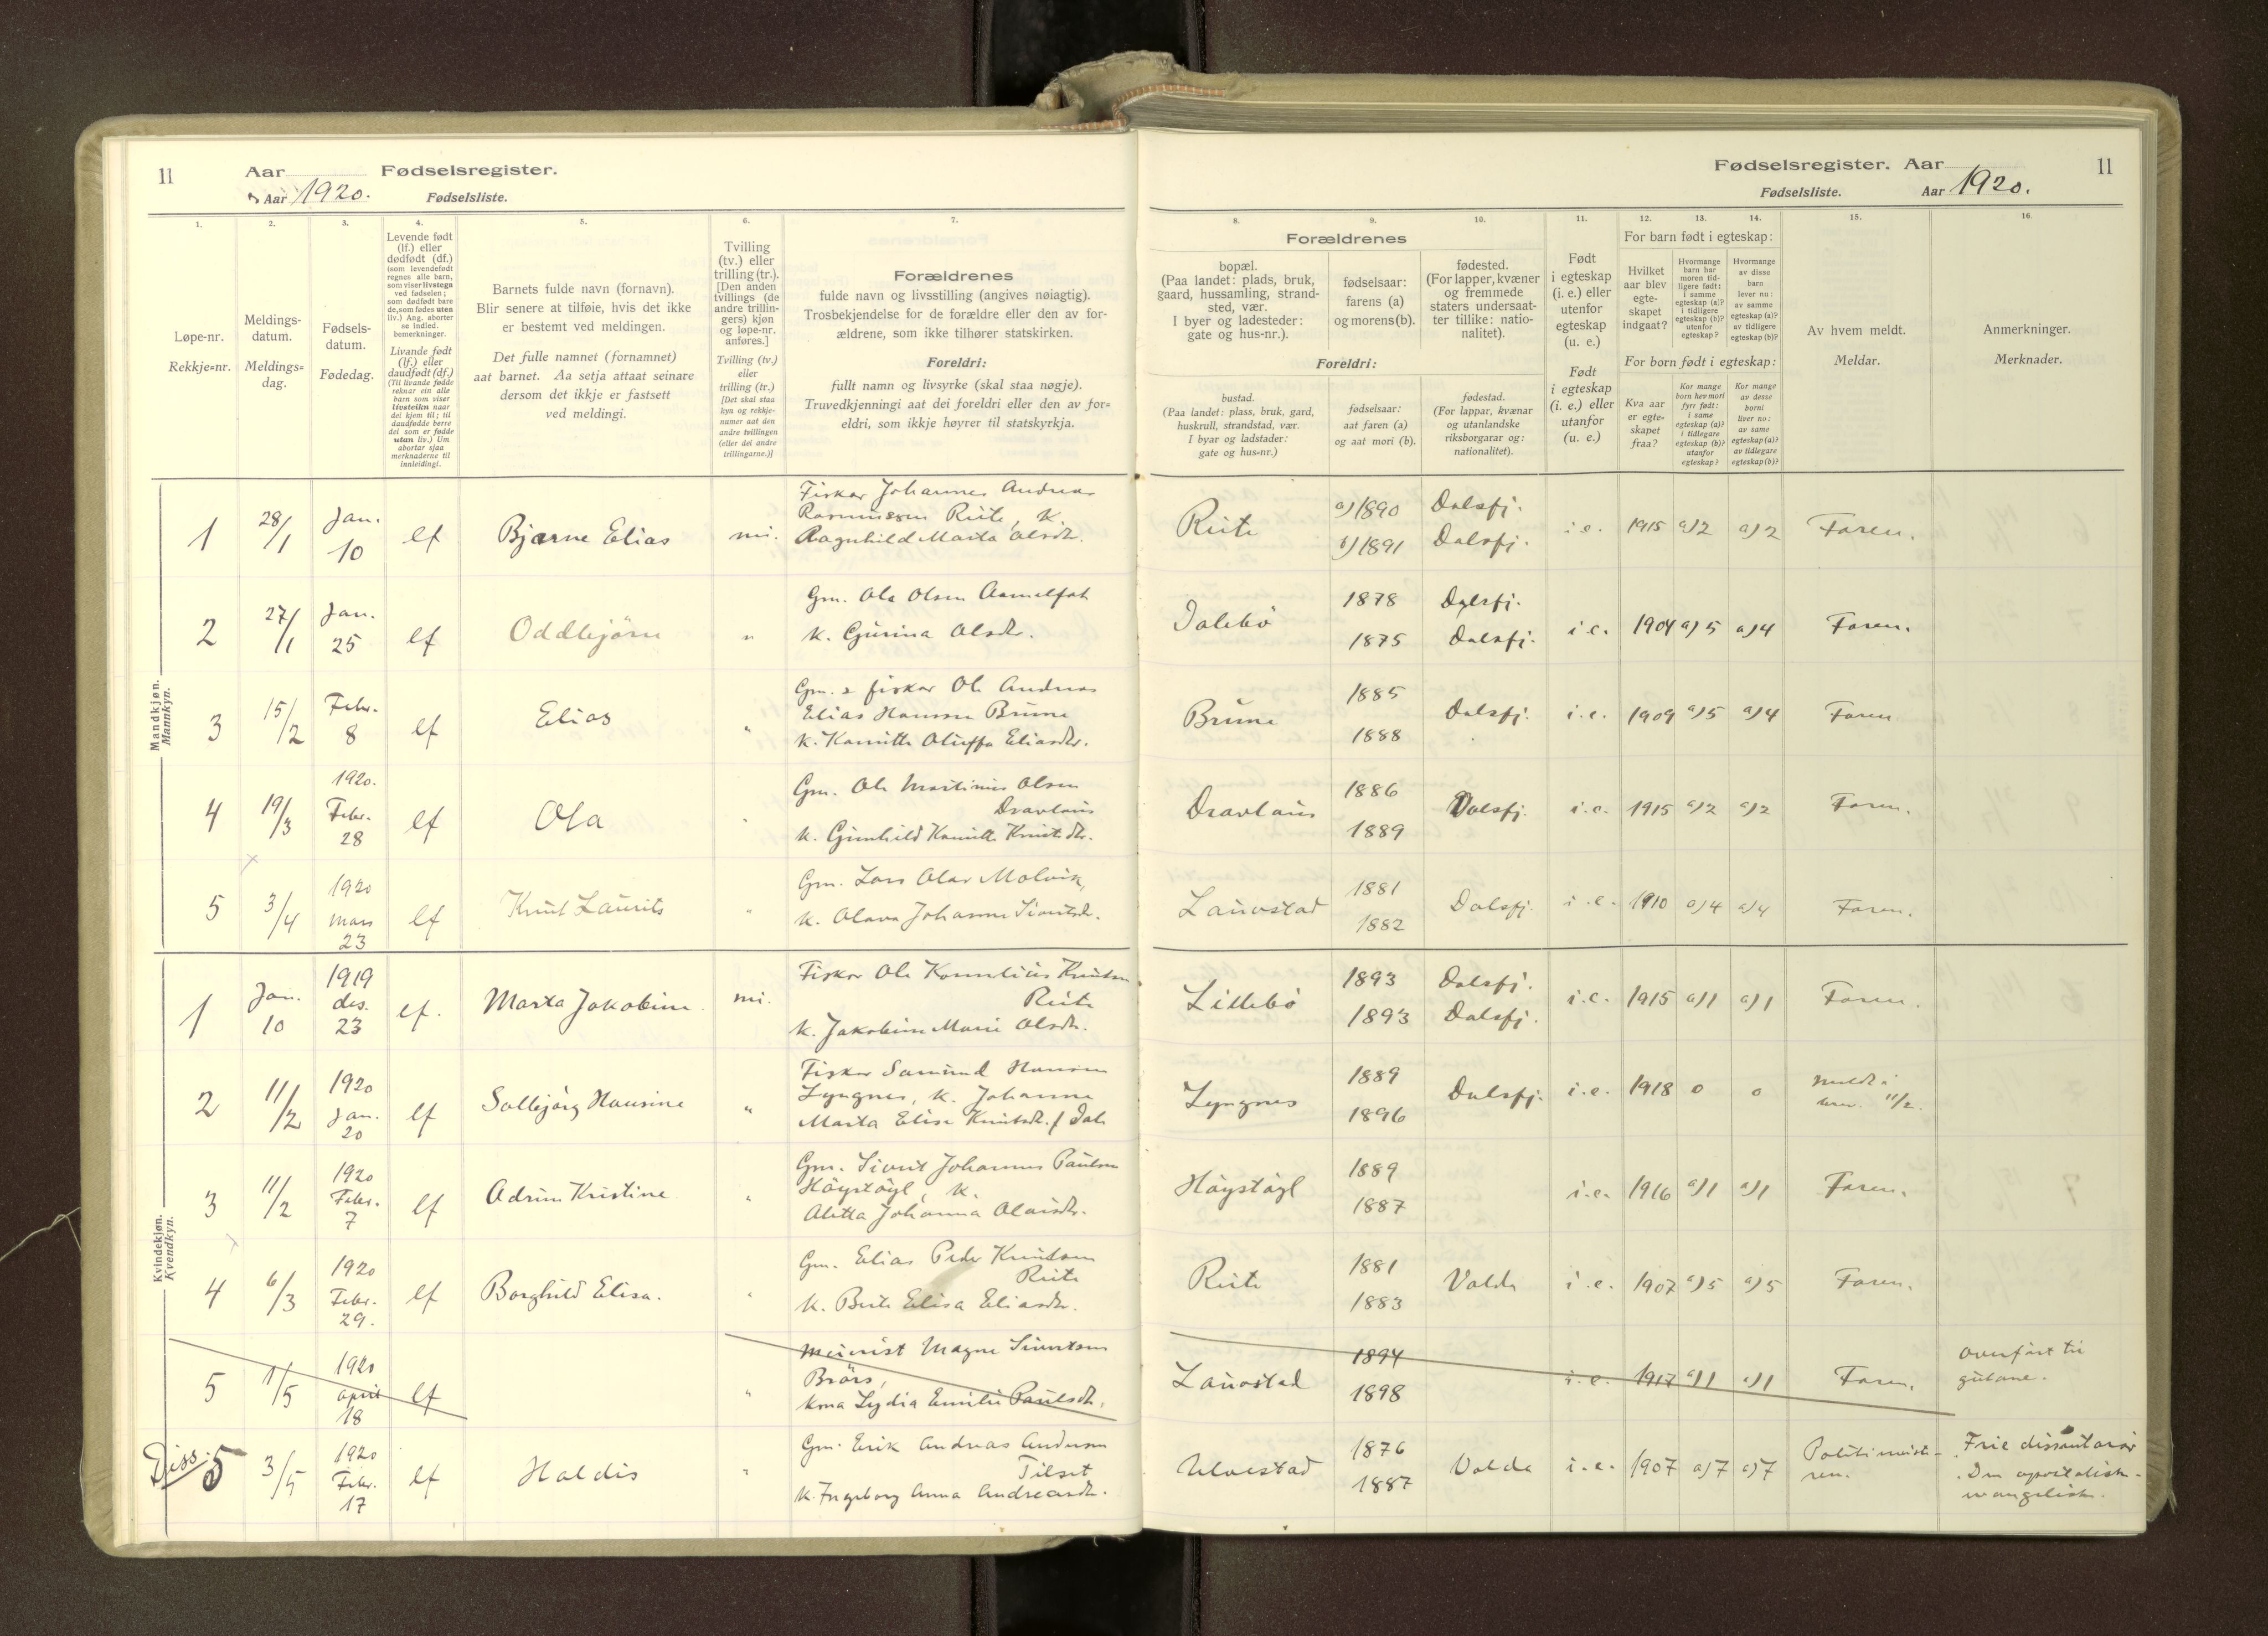 11 Aar Fødselsregister.
Aar 1920. Fødselsliste.
Fødselsregister. Aar 11
Fødselsliste. Aar 1920.
1. 2. 3. 4. 5. 6. 7.
Løpe-nr.
Rekkje=nr.
Meldings-
datum.
Meldings=
dag.
Fødsels-
datum.
Fødedag.
Levende født
(lf.) eller
dødfødt (df.)
(som levendefødt
regnes alle barn,
som viser livstegn
ved fødselen;
som dødfødt bare
de, som fødes uten
liv.) Ang. aborter
se indled.
bemerkninger.
Livande født
(lf.) eller
daudfødt (df.)
(Til livande fødde
reknar ein alle
barn som viser
livsteikn naar
dei kjem til; til
daudfødde berre
dei som er fødde
utan liv.) Um
abortar sjaa
merknaderne til
innleidingi.
Barnets fulde navn (fornavn).
Blir senere at tilføie, hvis det ikke
er bestemt ved meldingen.
Det fulle namnet (fornamnet)
aat barnet. Aa setja attaat seinare
dersom det ikkje er fastsett
ved meldingi.
Tvilling
(tv.) eller
trilling (tr.).
[Den anden
tvillings (de
andre trillin-
gers) kjøn
og løpe-nr.
anføres.]
Tvilling (tv.)
eller
trilling (tr.)
[Det skal staa
kyn og rekkje-
numer aat den
andre tvillingen
(eller dei andre
trillingarne.)]
Forældrenes
fulde navn og livsstilling (angives nøiagtig).
Trosbekjendelse for de forældre eller den av for-
ældrene, som ikke tilhører statskirken.
Foreldri:
fullt namn og livsyrke (skal staa nøgje).
Truvedkjenningi aat dei foreldri eller den av for=
eldri, som ikkje høyrer til statskyrkja.
8. 9. 10. 11. 12. 13. 14. 15. 16.
Forældrenes
bopæl.
(Paa landet: plads, bruk,
gaard, hussamling, strand-
sted, vær.
I byer og ladesteder:
gate og hus-nr.).
fødselsaar:
farens (a)
og morens (b).
fødested.
(For lapper, kvæner
og fremmede
staters undersaat-
ter tillike: natio-
nalitet).
Foreldri:
bustad.
(Paa landet: plass, bruk, gard,
huskrull, strandstad, vær.
I byar og ladstader:
gate og hus=nr.)
fødselsaar:
aat faren (a)
og aat mori (b).
fødestad.
(For lappar, kvænar
og utanlandske
riksborgarar og:
nationalitet).
Født
i egteskap
(i. e.) eller
utenfor
egteskap
(u. e.)
Født
i egteskap
(i. e.) eller
utanfor
(u. e.)
For barn født i egteskap:
Hvilket
aar blev
egte-
skapet
indgaat?
Hvormange
barn har
moren tid-
ligere født:
i samme
egteskap (a)?
i tidligere
egteskap (b)?
utenfor
egteskap?
Hvormange
av disse
barn
lever nu:
av samme
egteskap (a)?
av tidligere
egteskap (b)?
For born født i egteskap:
Kva aar
er egte=
skapet
fraa?
Kor mange
born hev mori
fyrr født:
i same
egteskap (a)?
i tidlegare
egteskap (b)?
utanfor
egteskap?
Kor mange
av desse
borni
liver no:
av same
egteskap (a)?
av tidlegare
egteskap (b)?
Av hvem meldt.
Meldar.
Anmerkninger.
Merknader.
Mandkjøn.
Mannkyn.
1 28/1 Jan. 10 lf Bjarne Elias mi. Fiskar Johannes Andreas
Rasmussen Reite, K.
Ragnhild Marta Olsdr.
Reite a) 1890 Dalsfj. i.e. 1915 a) 2 a) 2 Faren.
b) 1891 Dalsfj.
2 27/1 Jan. 25 lf Oddbjörn " Gm. Ola Olsen Aamelfot
K. Gurina Olsdr.
Dalebö 1878 Dalsfj. i.e. 1904 a) 5 a) 4 Faren.
1875 Dalsfj.
3 15/2 Febr. 8 lf Elias " Gm. & fiskar Ole Andreas
Elias Hansen Brune
K. Kamilla Oluffa Eliasdr.
Brune 1885 Dalsfj. i.e. 1909 a) 5 a) 4 Faren
1888
4 19/3 1920. Febr. 28 lf Ola " Gm. Ole Martinus Olsen
Dravlaus
K. Gunhild Kamilla Knutsdr.
Dravlaus 1886 Dalsfj. i.e. 1915 a) 2 a) 2 Faren.
1889
5 3/4 1920 mars 23 lf Knut Laurits " Gm. Lars Olav Molvik,
K. Olava Johanna Sivertsdr.
Lauvstad 1881 Dalsfj. i.e. 1910 a) 4 a) 4 Faren.
1882
Kvindekjøn.
Kvendkyn.
1 Jan. 10 1919 des. 23 lf. Marta Jakobine mi. Fiskar Ole Kornelius Knutsen
Reite
K. Jakobine Marie Olsdr.
Lillebö 1893 Dalsfj. i.e. 1915 a) 1 a) 1 Faren.
1893 Dalsfj.
2 11/2 1920 Jan. 20 lf Solbjörg Hansine " Fiskar Samund Hansen
Lyngnes, K. Johanna
Marta Elise Knutsdr. f Dale
Lyngnes 1889 Dalsfj. i.e. 1918 0 0 meldt i
1896 brev. 11/2.
3 11/2 1920 Febr. 7 lf Adrine Kristine " Gm. Sivert Johannes Paulsen
Höystögl, K.
Aletta Johanna Olavsdr.
Höystögl 1889 i.e. 1916 a) 1 a) 1 Faren.
1887
4 6/3 1920 Febr. 29. lf Borghild Elisa. " Gm. Elias Peder Knutsen
Reite
K. Berte Elisa Eliasdr.
Reite 1881 Volda i.e. 1907 a) 5 a) 5 Faren.
1883
5 1/5 1920 april 18 lf " Magne Sivertsen
Brörs,
Kona Lydia Emilie Paulsdr.
Lauvstad 1894 i.e. 1917 a) 1 a) 1 Faren. overfört til
1898
Diss. 5 3/5 1920 Febr. 17 lf Haldis " Gm. Erik Andreas Andersen
Tilset
K. Ingeborg Anna Andreasdr.
Ulvestad 1876 Volda i.e. 1907 a) 7 a) 7 Politimeiste-
1887 ren.
Frie dissentarar
Den apostolisk-
evangelisk.